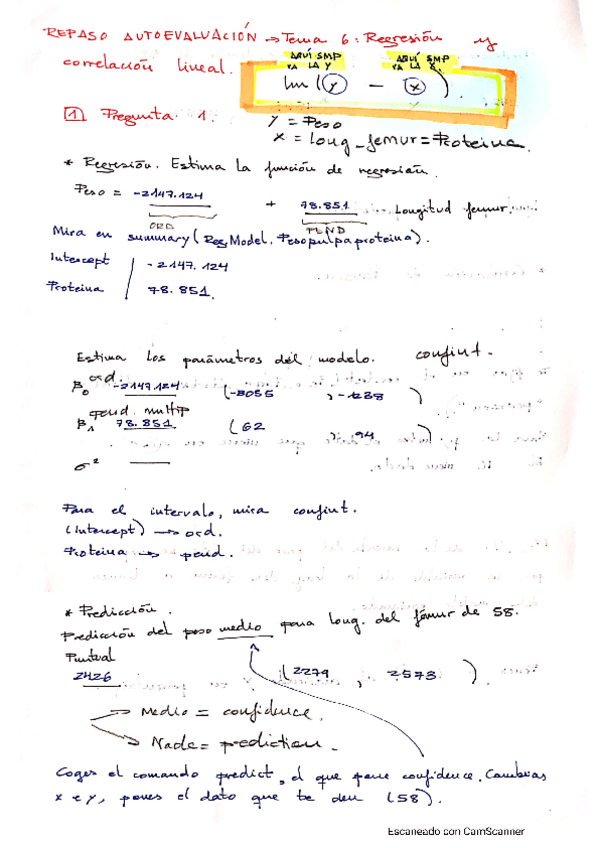 REPASO AUTOEVALUACIÓN → Tema 6: Regresión y
correlación lineal.
AQUÍ SMP VA LA Y
AQUÍ SMP VA LA X
lm (y - x).
1 Pregunta 1.
y = Peso
x = long_femur = Proteina.
* Regresión. Estima la función de regresión.
Peso = -2147.124 + 78.851 Longitud femur.
ORD PEND
Mira en summary (RegModel. Pesopulpaproteina).
Intercept | -2147.124
Proteina | 78.851.
Estima los parámetros del modelo. confint.
β0 ord. -2147.124 (-3055 , -1238 )
pend. multip
β1 78.851 (62 , 94 )
σ² —
Para el intervalo, mira confint.
(Intercept) → ord.
Proteina → pend.
* Predicción.
Predicción del peso medio para long. del fémur de 58.
Puntual
2426 (2279 , 2573 )
→ Medio = confidence.
→ Nada = prediction.
Coges el comando predict, el que pone confidence. Cambias
x e y, pones el dato que te den (58).
Escaneado con CamScanner